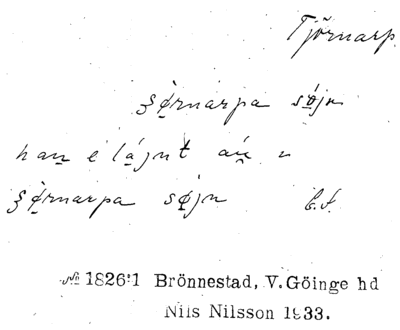 Tjörnarp
ʒø̣rnarpa sø̣jn
han e lájnt
ʒø̣rnarpa sø̣jn
№ 1826:1 Brönnestad, V. Göinge hd
Nils Nilsson 1933.